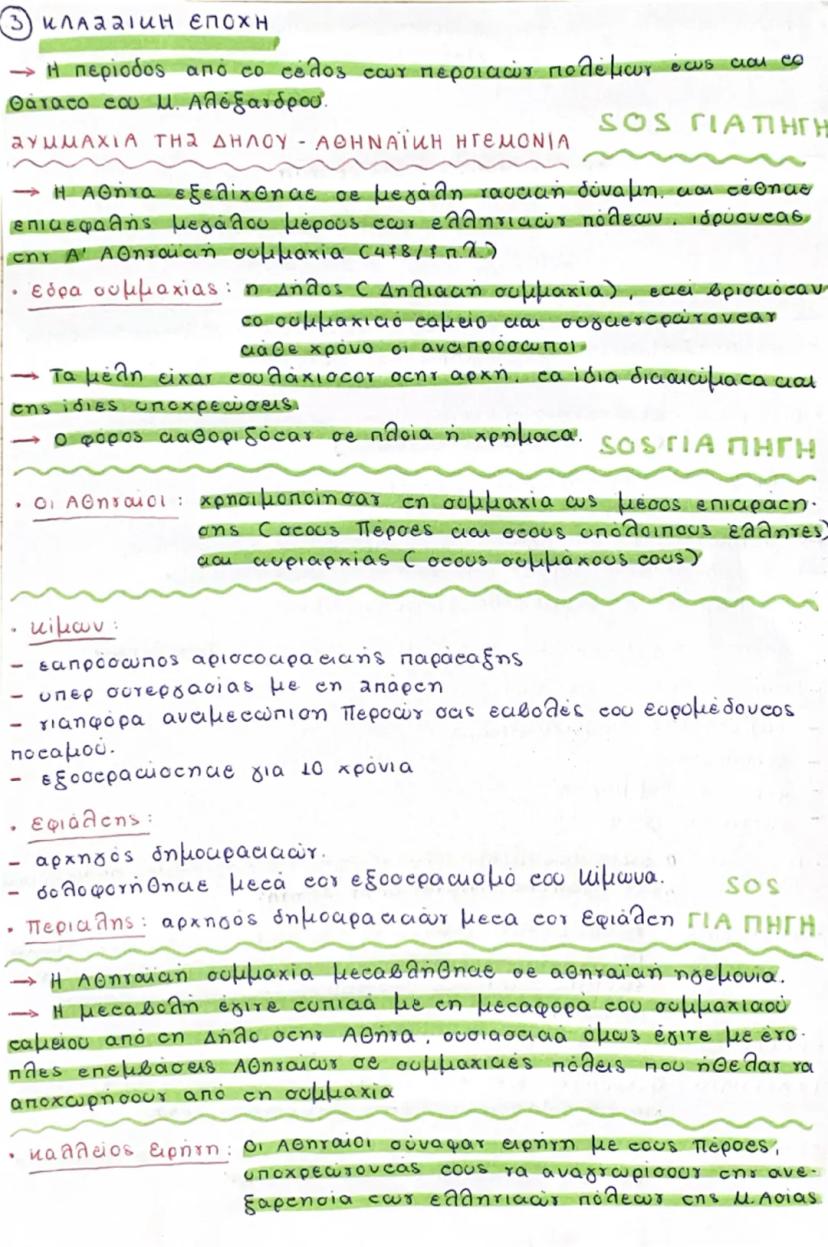 ③ ΚΛΑΣΣΙΚΗ ΕΠΟΧΗ
→ Η περίοδος από το τέλος των περσικών πολέμων έως και το
θάνατο του Μ. Αλέξανδρου.
ΣΥΜΜΑΧΙΑ ΤΗΣ ΔΗΛΟΥ - ΑΘΗΝΑΪΚΗ ΗΓΕΜΟΝΙΑ SOS ΓΙΑ ΠΗΓΗ
→ Η Αθήνα εξελίχθηκε σε μεγάλη ναυτική δύναμη. και τέθηκε
επικεφαλής μεγάλου μέρους των ελληνικών πόλεων. ιδρύοντας
την Α' Αθηναϊκή συμμαχία (478/7 π.χ.)
· Εδρα συμμαχίας: η Δήλος (Δηλιακή συμμαχία), εκεί βρισκόταν
το συμμαχικό ταμείο και συγκεντρώνονταν
κάθε χρόνο οι αντιπρόσωποι.
→ Τα μέλη είχαν τουλάχιστον στην αρχή. τα ίδια δικαιώματα και
της ίδιες υποχρεώσεις
→ Ο φόρος καθοριζόταν σε πλοία ή χρήματα. SOS ΓΙΑ ΠΗΓΗ
· Οι Αθηναίοι: χρησιμοποίησαν τη συμμαχία ως μέσος επικράτη-
σης (στους Πέρσες και στους υπόλοιπους έλληνες)
και κυριαρχίας (στους συμμάχους τους)
· Κίμων:
- εκπρόσωπος αριστοκρατικής παράταξης
- υπερ συνεργασίας με τη Σπάρτη
- νικηφόρα αντιμετώπιση Περσών στις εκβολές του Ευρυμέδοντος
ποταμού.
- εξοστρακίστηκε για 10 χρόνια
· Εφιάλτης:
- αρχηγός δημοκρατικών.
- δολοφονήθηκε μετά τον εξοστρακισμό του Κίμωνα. SOS
· Περικλης: αρχηγός δημοκρατικών μετα τον Εφιάλτη ΓΙΑ ΠΗΓΗ
→ Η Αθηναϊκή συμμαχία μεταβλήθηκε σε αθηναϊκή ηγεμονία.
→ Η μεταβολή έγινε τυπικά με τη μεταφορά του συμμαχικού
ταμείου από τη Δήλο στην Αθήνα, ουσιαστικά όμως έγινε με ένο-
πλες επεμβάσεις Αθηναίων σε συμμαχικές πόλεις που ήθελαν να
αποχωρήσουν από τη συμμαχία
· Καλλείος Ειρήνη: Οι Αθηναίοι σύναψαν ειρήνη με τους Πέρσες,
υποχρεώνοντας τους να αναγνωρίσουν την ανε-
ξαρτησία των ελληνικών πόλεων της Μ. Ασίας